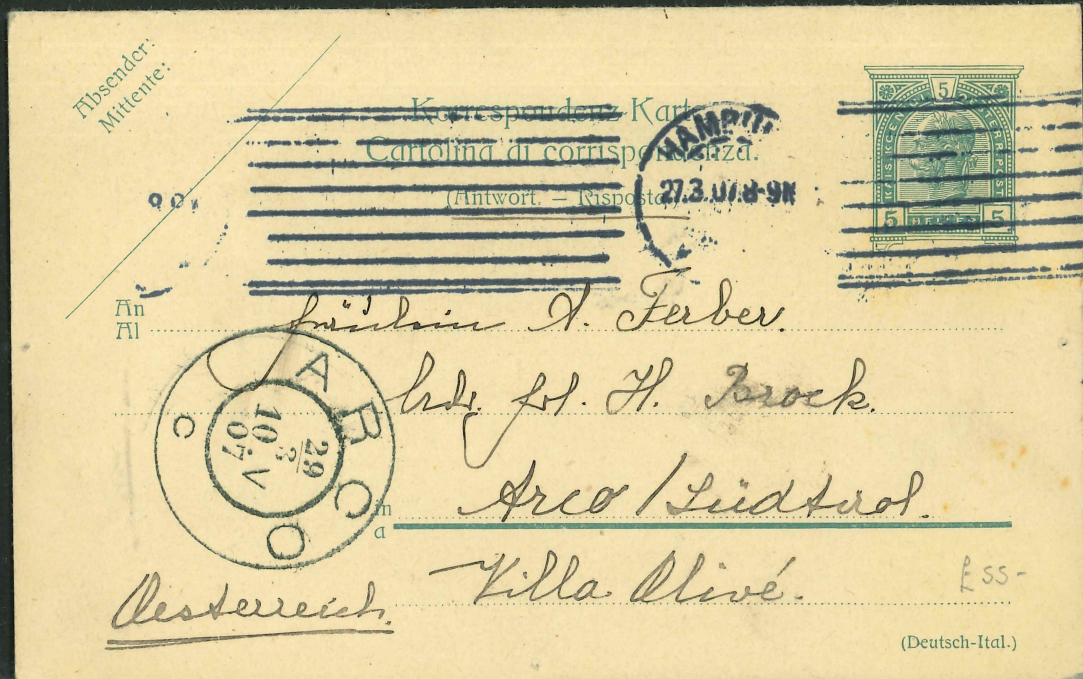 Absender:
Mittente:
Korrespondenz-Karte
Cartolina di corrispondenza.
(Antwort. – Risposta)
HAMBU
27.3.07.8-9N
5
KAIS. KGL. OESTERR. POST
5 HELLER 5
An
Al
Fräulein A. Ferber.
frl. H. Brock.
in
a
Arco / Südtirol.
Villa Olivé.
Oesterreich.
ARCO
29
3
10.V
07
c
£55-
(Deutsch-Ital.)